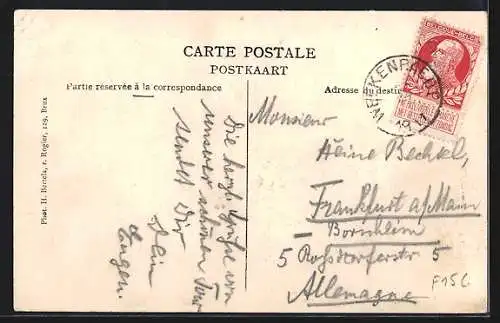 CARTE POSTALE
POSTKAART
Partie réservée à la correspondance
Adresse du desti
BELGIQUE-BELGIE
Phot. H. Bertels, r. Rogier, 129, Brux
Die herzl. Grüße von
unserer schönen Tour
sendet Dir
Dein
Eugen.
Monsieur
Heine Bechtel,
Frankfurt a/Main
Bornheim
5 Roßdorferstr 5
Allemagne
F15C